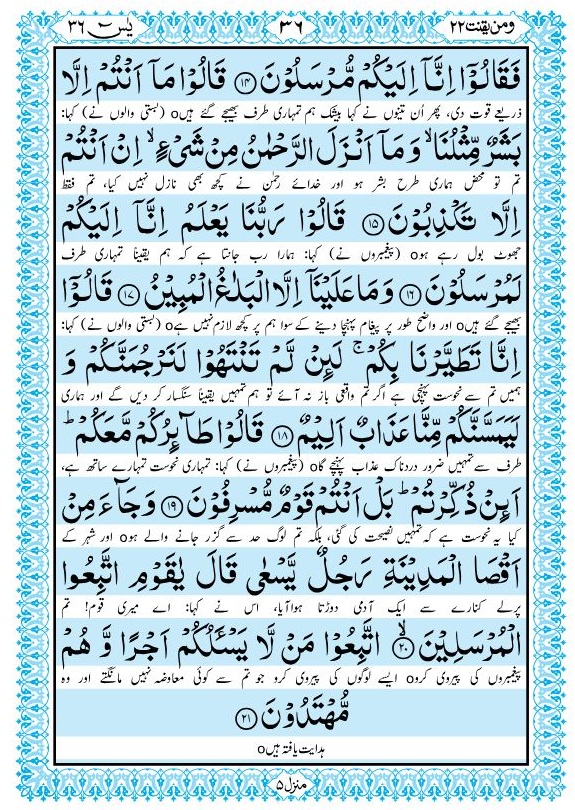 ومن یقنت ۲۲ ۳۶ یٰسٓ ۳۶
فَقَالُوْۤا اِنَّاۤ اِلَیْكُمْ مُّرْسَلُوْنَ ﴿۱۴﴾ قَالُوْا مَاۤ اَنْتُمْ اِلَّا
ذریعے قوت دی، پھر اُن تینوں نے کہا بیشک ہم تمہاری طرف بھیجے گئے ہیںo (بستی والوں نے) کہا:
بَشَرٌ مِّثْلُنَا ۙ وَ مَاۤ اَنْزَلَ الرَّحْمٰنُ مِنْ شَیْءٍ ۙ اِنْ اَنْتُمْ
تم تو محض ہماری طرح بشر ہو اور خدائے رحمٰن نے کچھ بھی نازل نہیں کیا، تم فقط
اِلَّا تَكْذِبُوْنَ ﴿۱۵﴾ قَالُوْا رَبُّنَا یَعْلَمُ اِنَّاۤ اِلَیْكُمْ
جھوٹ بول رہے ہوo (پیغمبروں نے) کہا: ہمارا رب جانتا ہے کہ ہم یقیناً تمہاری طرف
لَمُرْسَلُوْنَ ﴿۱۶﴾ وَ مَا عَلَیْنَاۤ اِلَّا الْبَلٰغُ الْمُبِیْنُ ﴿۱۷﴾ قَالُوْۤا
بھیجے گئے ہیںo اور واضح طور پر پیغام پہنچا دینے کے سوا ہم پر کچھ لازم نہیں ہےo (بستی والوں نے) کہا:
اِنَّا تَطَیَّرْنَا بِكُمْ ۚ لَىِٕنْ لَّمْ تَنْتَهُوْا لَنَرْجُمَنَّكُمْ وَ
ہمیں تم سے نحوست پہنچی ہے اگر تم واقعی باز نہ آئے تو ہم تمہیں یقیناً سنگسار کر دیں گے اور ہماری
لَیَمَسَّنَّكُمْ مِّنَّا عَذَابٌ اَلِیْمٌ ﴿۱۸﴾ قَالُوْا طَآىِٕرُكُمْ مَّعَكُمْ ؕ
طرف سے تمہیں ضرور دردناک عذاب پہنچے گاo (پیغمبروں نے) کہا: تمہاری نحوست تمہارے ساتھ ہے،
اَىِٕنْ ذُكِّرْتُمْ ؕ بَلْ اَنْتُمْ قَوْمٌ مُّسْرِفُوْنَ ﴿۱۹﴾ وَ جَآءَ مِنْ
کیا یہ نحوست ہے کہ تمہیں نصیحت کی گئی، بلکہ تم لوگ حد سے گزر جانے والے ہوo اور شہر کے
اَقْصَا الْمَدِیْنَةِ رَجُلٌ یَّسْعٰی قَالَ یٰقَوْمِ اتَّبِعُوا
پرلے کنارے سے ایک آدمی دوڑتا ہوا آیا، اس نے کہا: اے میری قوم! تم
الْمُرْسَلِیْنَ ﴿ۙ۲۰﴾ اتَّبِعُوْا مَنْ لَّا یَسْـَٔلُكُمْ اَجْرًا وَّ هُمْ
پیغمبروں کی پیروی کروo ایسے لوگوں کی پیروی کرو جو تم سے کوئی معاوضہ نہیں مانگتے اور وہ
مُّهْتَدُوْنَ ﴿۲۱﴾
ہدایت یافتہ ہیںo
منزل ۵